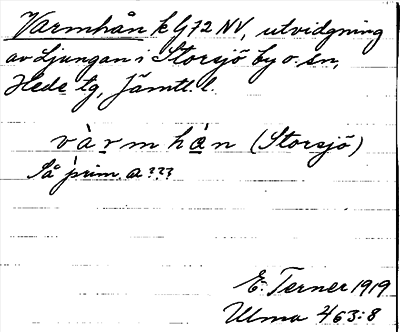 Varmhån k G 72 NV, utvidgning
av Ljungan i Storsjö by o. sn,
Hede tg, Jämtl. l.
vàrmhàn (Storsjö)
Så prim. a???
E. Terner 1919
Ulma 463:8